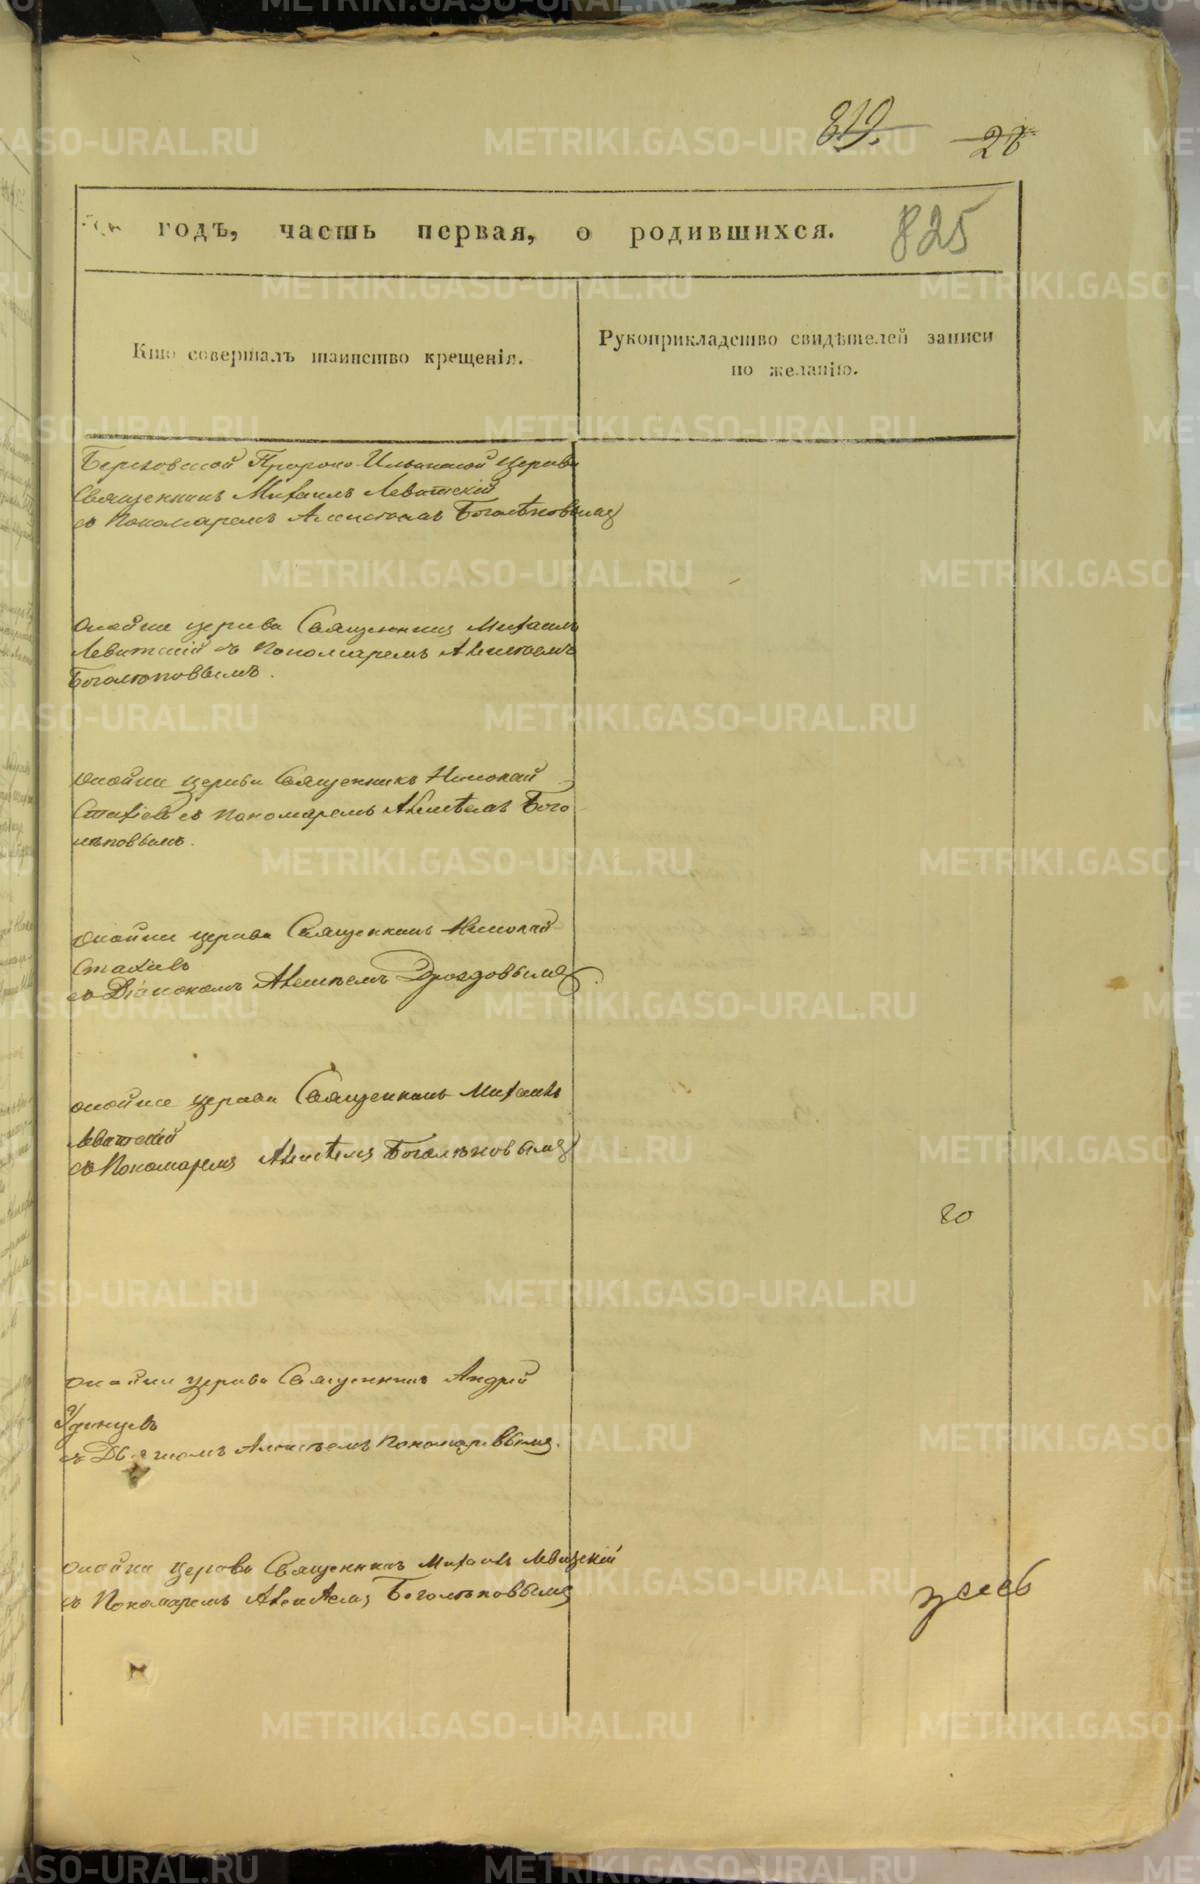 819.
28
годъ, часть первая, о родившихся.
825
Кто совершалъ таинство крещенія.
Рукоприкладство свидѣтелей записи
по желанію.
Пророко-Ильинской церкви
Священникъ Михаилъ Левитскій
съ Пономаремъ Алексѣемъ Боголѣповымъ
онойже церкви Священникъ Михаилъ
Левитскій съ Пономаремъ Алексѣемъ
Боголѣповымъ.
онойже церкви Священникъ Николай
Стахіевъ съ Пономаремъ Алексѣемъ Бого
лѣповымъ.
онойже церкви Священникъ Николай
Стахіевъ
съ Діакономъ Алексѣемъ Дроздовымъ.
онойже церкви Священникъ Михаилъ
Левитскій
съ Пономаремъ Алексѣемъ Боголѣповымъ
80
онойже церкви Священникъ Андрей
Удинцевъ
съ Алексѣемъ Пономаревымъ.
онойже церкви Священникъ Михаилъ Левицкій
съ Пономаремъ Алексѣемъ Боголѣповымъ
METRIKI.GASO-URAL.RU